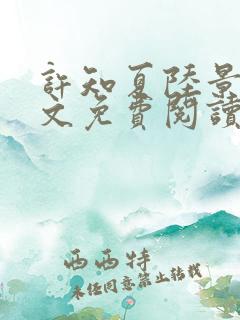 許知夏陸景
文免費閱讀
西西特
未经同意禁止转载